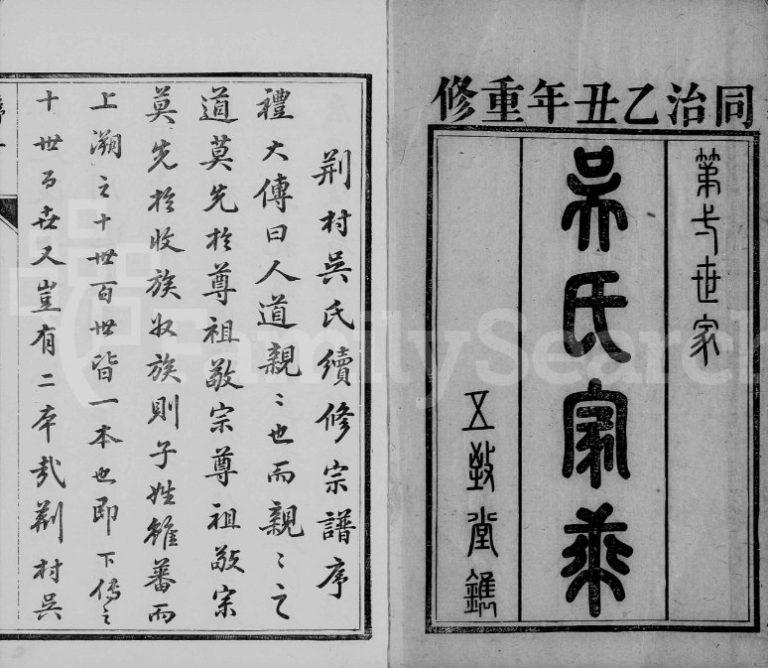 同治乙丑年重修
第七世家
吳氏家乘
五教堂鐫
荆村吳氏續修宗譜序
禮大傳曰人道親〻也而親〻之
道莫先於尊祖敬宗尊祖敬宗
莫先於收族收族則子姓雖蕃而
上溯之十世百世皆一本也即下傳之
十世百世又豈有二本哉荆村吳
FamilySearch